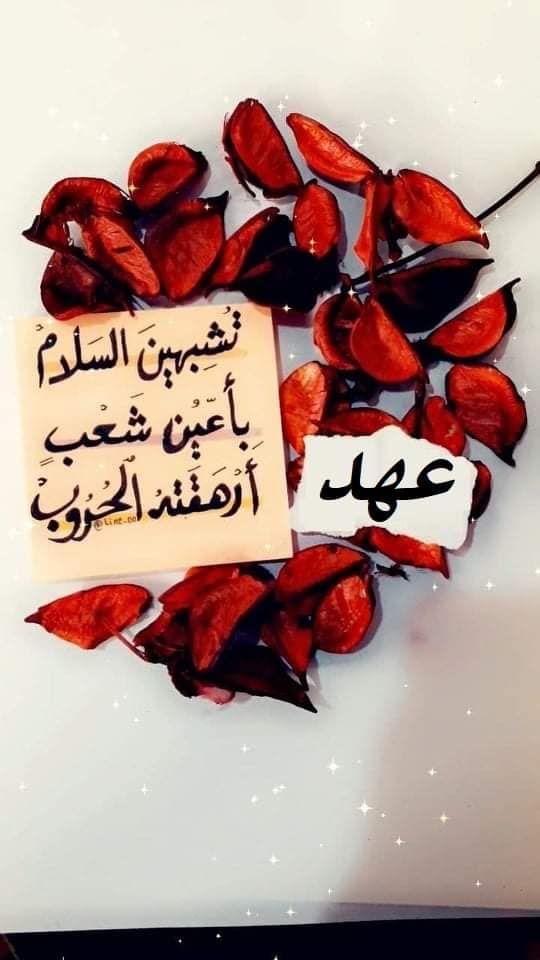 تُشبِهينَ السَلَامْ
بِأعّيُن شَعْبٍ
أَرْهَقَتهُ الحُرُوبْ
عهد